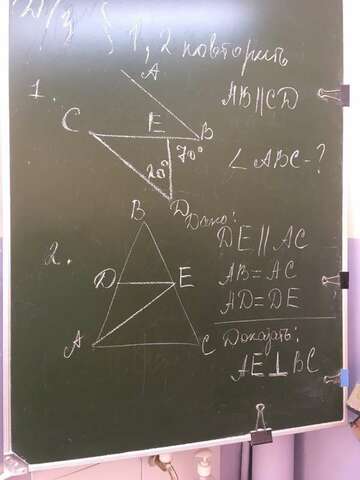 Д/з § 1, 2 повторить
1.
A
AB || CD
C
E
B
70°
20°
∠ ABC - ?
D
2.
B
Дано:
DE || AC
AB = AC
AD = DE
D
E
A
C
Доказать:
AE ⊥ BC